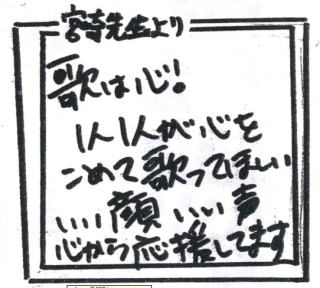 宮崎先生より
歌は心!
1人1人が心を
こめて歌ってほしい
いい顔 いい声
心から応援してます